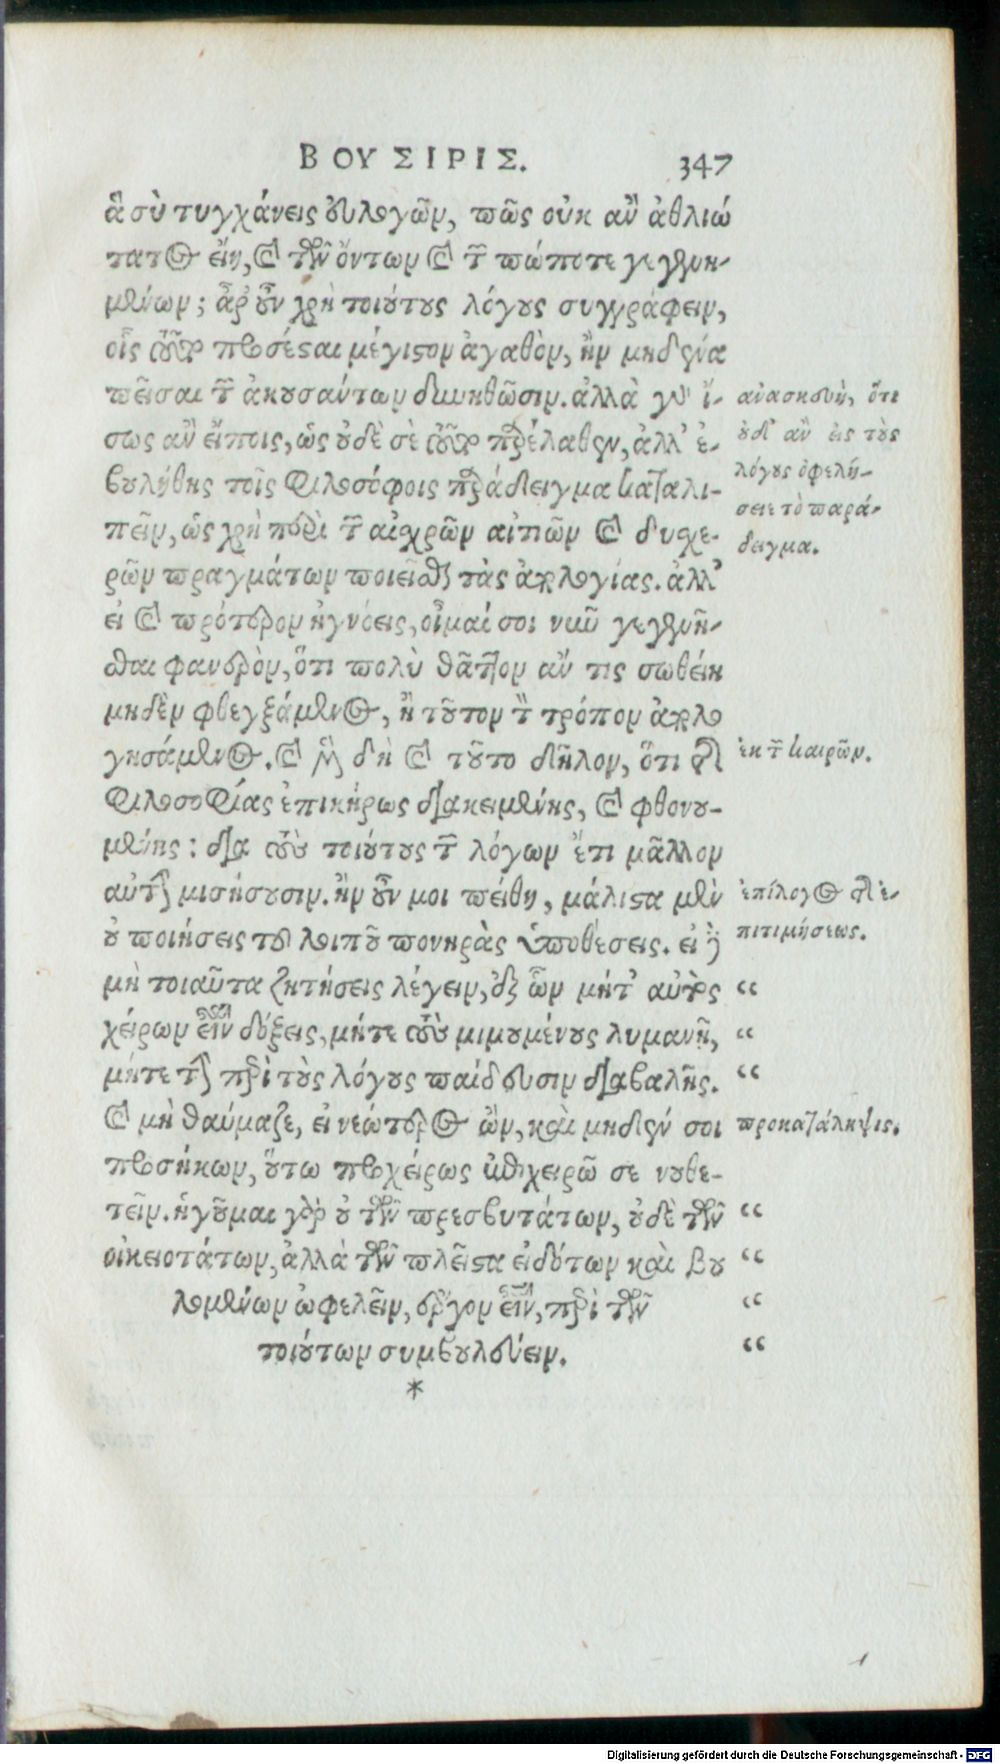 ΒΟΥΣΙΡΙΣ. 347
ἃ σὺ τυγχάνεις εὐλογῶν, πῶς οὐκ ἂν ἀθλιώ
τατος εἴη, καὶ τῶν ὄντων καὶ τῶν πώποτε γεγενη-
μένων; ἆρ' οὖν χρὴ τοιούτους λόγους συγγράφειν,
οἷς τοῦτο προσέσται μέγιστον ἀγαθὸν, ἢν μηδένα
πεῖσαι τῶν ἀκουσάντων δυνηθῶσιν. ἀλλὰ γὰρ ἴ-
σως ἂν εἴποις, ὡς οὐδὲ σὲ τοῦτο παρέλαθεν, ἀλλ' ἐ-
βουλήθης τοῖς φιλοσόφοις παράδειγμα καταλι-
πεῖν, ὡς χρὴ περὶ τῶν αἰσχρῶν αἰτιῶν καὶ δυσχε-
ρῶν πραγμάτων ποιεῖσθαι τὰς ἀπολογίας. ἀλλ'
εἰ καὶ πρότερον ἠγνόεις, οἶμαί σοι νῦν γεγενῆ-
σθαι φανερὸν, ὅτι πολὺ θᾶττον ἄν τις σωθείη
μηδὲν φθεγξάμενος, ἢ τοῦτον τὸν τρόπον ἀπολο
γησάμενος. καὶ μὴν δὴ καὶ τοῦτο δῆλον, ὅτι τῆς
φιλοσοφίας ἐπικήρως διακειμένης, καὶ φθονου-
μένης: διὰ τοὺς τοιούτους τῶν λόγων ἔτι μᾶλλον
αὐτὴν μισήσουσιν. ἢν οὖν μοι πείθῃ, μάλιστα μὲν
οὐ ποιήσεις τοῦ λοιποῦ πονηρὰς ὑποθέσεις. εἰ δὲ
μὴ τοιαῦτα ζητήσεις λέγειν, ἐξ ὧν μήτ' αὐτὸς
χείρων εἶναι δόξεις, μήτε τοὺς μιμουμένους λυμανῇ,
μήτε τὴν περὶ τοὺς λόγους παίδευσιν διαβαλῇς.
καὶ μὴ θαύμαζε, εἰ νεώτερος ὢν, καὶ μηδέν σοι
προσήκων, οὕτω προχείρως ἐπιχειρῶ σε νουθε-
τεῖν. ἡγοῦμαι γὰρ οὐ τῶν πρεσβυτάτων, οὐδὲ τῶν
οἰκειοτάτων, ἀλλὰ τῶν πλεῖστα εἰδότων καὶ βου
λομένων ὠφελεῖν, ἔργον εἶναι, περὶ τῶν
τοιούτων συμβουλεύειν.
*
ἀνασκευὴ, ὅτι
οὐδ' ἂν εἰς τοὺς
λόγους ὀφελή-
σειε τὸ παρά-
δειγμα.
ἐκ τῶν καιρῶν.
ἐπίλογος τῆς ἐ-
πιτιμήσεως.
“
“
“
προκατάληψις.
“
“
“
“
Digitalisierung gefördert durch die Deutsche Forschungsgemeinschaft - DFG